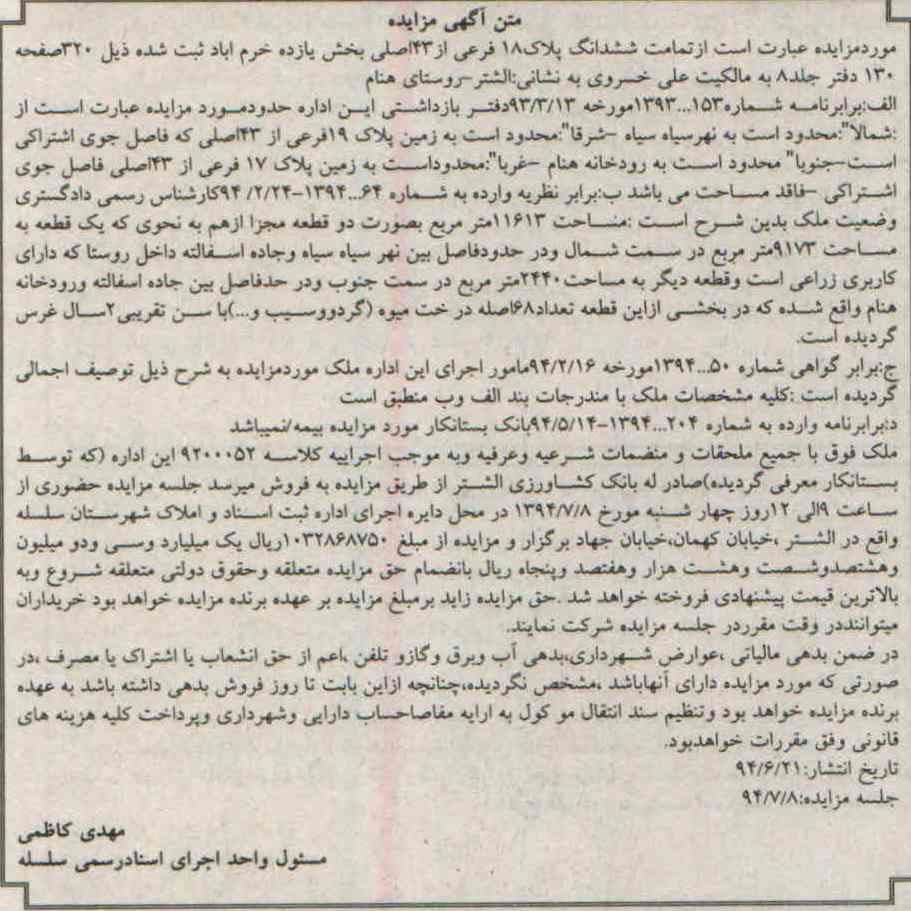 متن آگهی مزایده
موردمزایده عبارت است ازتمامت ششدانگ پلاک۱۸ فرعی از۴۳اصلی بخش یازده خرم اباد ثبت شده ذیل ۳۲۰صفحه
۱۳۰ دفتر جلد۸ به مالکیت علی خسروی به نشانی:الشتر-روستای هنام
الف:برابرنامه شماره۱۵۳...۱۳۹۳مورخه ۹۳/۳/۱۳دفتر بازداشتی این اداره حدودمورد مزایده عبارت است از
:شمالا":محدود است به نهرسیاه سیاه -شرقا":محدود است به زمین پلاک ۱۹فرعی از ۴۳اصلی که فاصل جوی اشتراکی
است-جنوبا" محدود است به رودخانه هنام -غربا":محدوداست به زمین پلاک ۱۷ فرعی از ۴۳اصلی فاصل جوی
اشتراکی -فاقد مساحت می باشد ب:برابر نظریه وارده به شماره ۶۴...۱۳۹۴-۹۴/۲/۲۴کارشناس رسمی دادگستری
وضعیت ملک بدین شرح است :مساحت ۱۱۶۱۳متر مربع بصورت دو قطعه مجزا ازهم به نحوی که یک قطعه به
مساحت ۹۱۷۳متر مربع در سمت شمال ودر حدودفاصل بین نهر سیاه سیاه وجاده اسفالته داخل روستا که دارای
کاربری زراعی است وقطعه دیگر به مساحت۲۴۴۰متر مربع در سمت جنوب ودر حدفاصل بین جاده اسفالته ورودخانه
هنام واقع شده که در بخشی ازاین قطعه تعداد۶۸اصله در خت میوه (گردووسیب و...)با سن تقریبی۲سال غرس
گردیده است.
ج:برابر گواهی شماره ۵۰...۱۳۹۴مورخه ۹۴/۲/۱۶مامور اجرای این اداره ملک موردمزایده به شرح ذیل توصیف اجمالی
گردیده است :کلیه مشخصات ملک با مندرجات بند الف وب منطبق است
د:برابرنامه وارده به شماره ۲۰۴...۱۳۹۴-۹۴/۵/۱۴بانک بستانکار مورد مزایده بیمه/نمیباشد
ملک فوق با جمیع ملحقات و منضمات شرعیه وعرفیه وبه موجب اجراییه کلاسه ۹۲۰۰۰۵۲ این اداره (که توسط
بستانکار معرفی گردیده)صادر له بانک کشاورزی الشتر از طریق مزایده به فروش میرسد جلسه مزایده حضوری از
ساعت ۹الی ۱۲روز چهار شنبه مورخ ۱۳۹۴/۷/۸ در محل دایره اجرای اداره ثبت اسناد و املاک شهرستان سلسله
واقع در الشتر ،خیابان کهمان،خیابان جهاد برگزار و مزایده از مبلغ ۱۰۳۲۸۶۸۷۵۰ریال یک میلیارد وسی ودو میلیون
وهشتصدوشصت وهشت هزار وهفتصد وپنجاه ریال بانضمام حق مزایده متعلقه وحقوق دولتی متعلقه شروع وبه
بالاترین قیمت پیشنهادی فروخته خواهد شد .حق مزایده زاید برمبلغ مزایده بر عهده برنده مزایده خواهد بود خریداران
میتواننددر وقت مقرردر جلسه مزایده شرکت نمایند.
در ضمن بدهی مالیاتی ،عوارض شهرداری،بدهی آب وبرق وگازو تلفن ،اعم از حق انشعاب یا اشتراک یا مصرف ،در
صورتی که مورد مزایده دارای آنهاباشد ،مشخص نگردیده،چنانچه ازاین بابت تا روز فروش بدهی داشته باشد به عهده
برنده مزایده خواهد بود وتنظیم سند انتقال مو کول به ارایه مفاصاحساب دارایی وشهرداری وپرداخت کلیه هزینه های
قانونی وفق مقررات خواهدبود.
تاریخ انتشار:۹۴/۶/۲۱
جلسه مزایده:۹۴/۷/۸
مهدی کاظمی
مسئول واحد اجرای اسنادرسمی سلسله